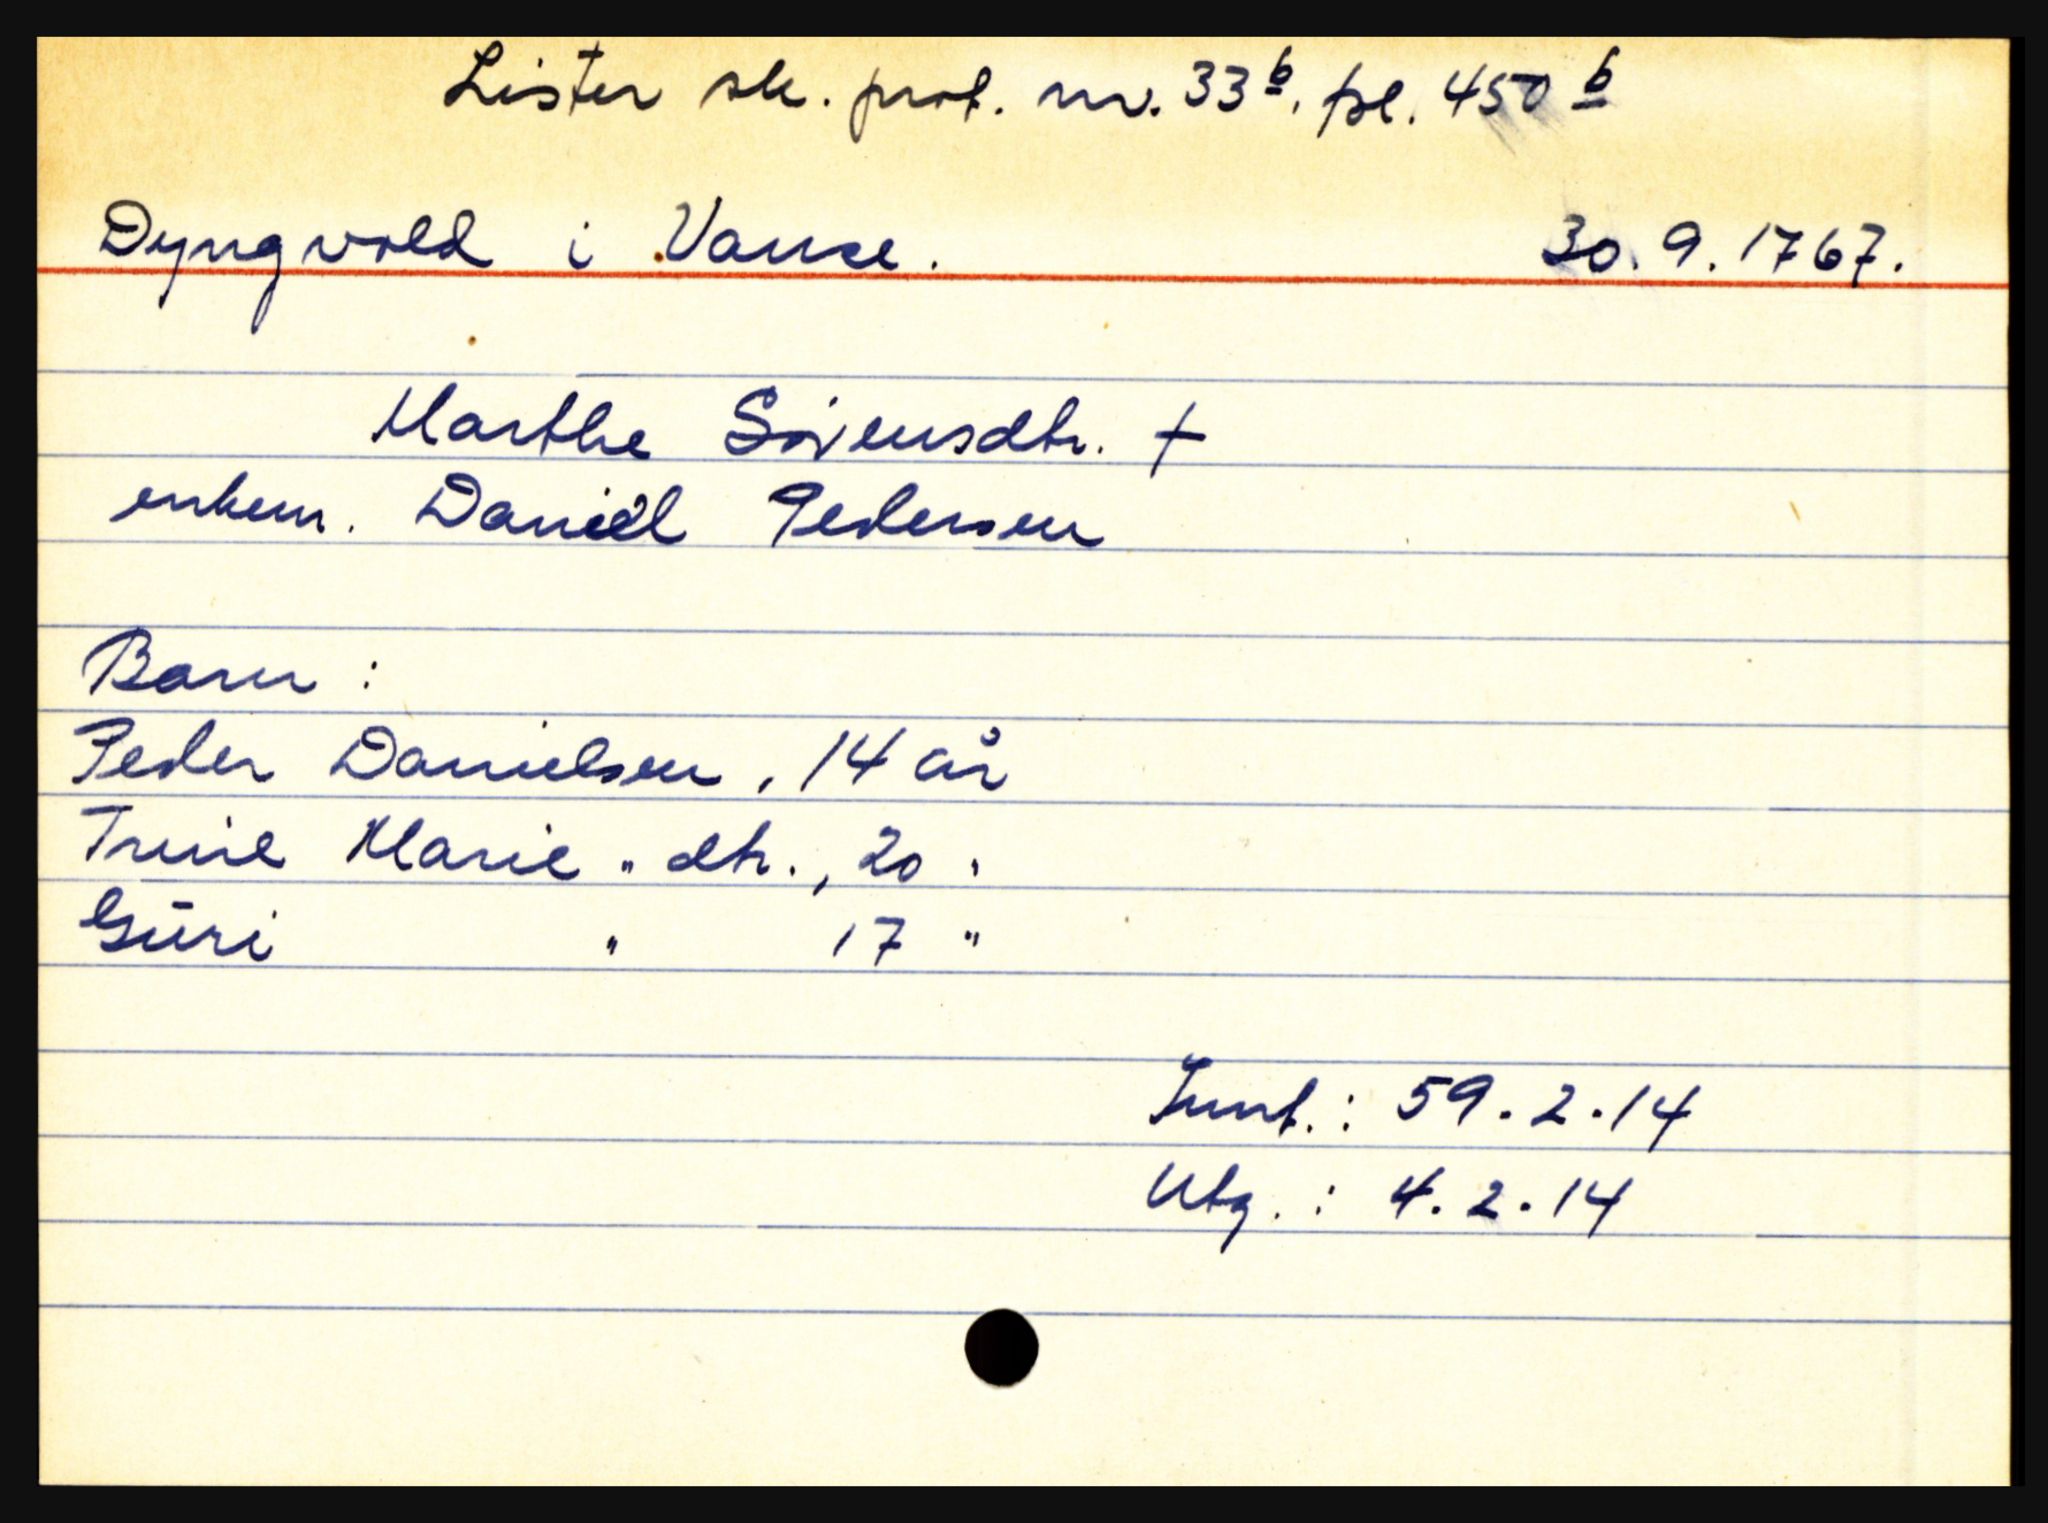 Lister sk. prot. nr. 33 b, fol. 450 b
Dyngvold i Vanse. 30. 9. 1767.
Marthe Sørensdtr. †
enkem. Daniel Pedersen
Barn :
Peder Danielsen, 14 år
Trine Marie " dtr., 20 "
Gūri " 17 "
: 59. 2. 14
Utg. : 4. 2. 14